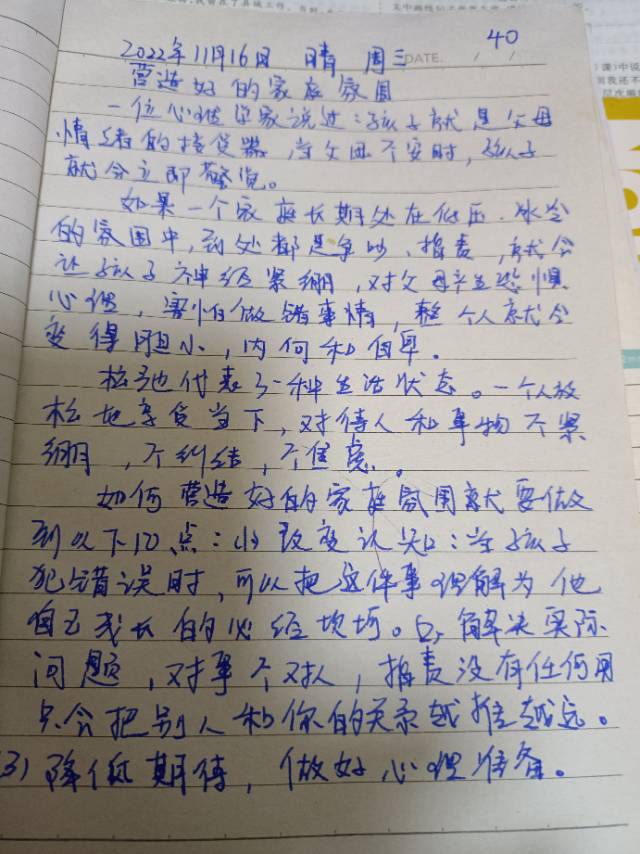 40
2022年11月16日 晴 周三 DATE.
营造好的家庭氛围
一位心理学家说过:孩子就是父母
情绪的接受器,当父母不安时,孩子
就会立即警觉。
如果一个家庭长期处在低压、冰冷
的氛围中,到处都是争吵、指责,就会
让孩子神经紧绷,对父母产生恐惧
心理,害怕做错事情,整个人就会
变得胆小,内向和自卑。
松弛代表了一种生活状态。一个人放
松地享受当下,对待人和事物不紧
绷,不纠结,不焦虑。
如何营造好的家庭氛围就要做
到以下10点:(1)改变认知:当孩子
犯错误时,可以把这件事理解为他
自己成长的必经坎坷。(2)解决实际
问题,对事不对人,指责没有任何用
只会把别人和你的关系越推越远。
(3)降低期待,做好心理准备。